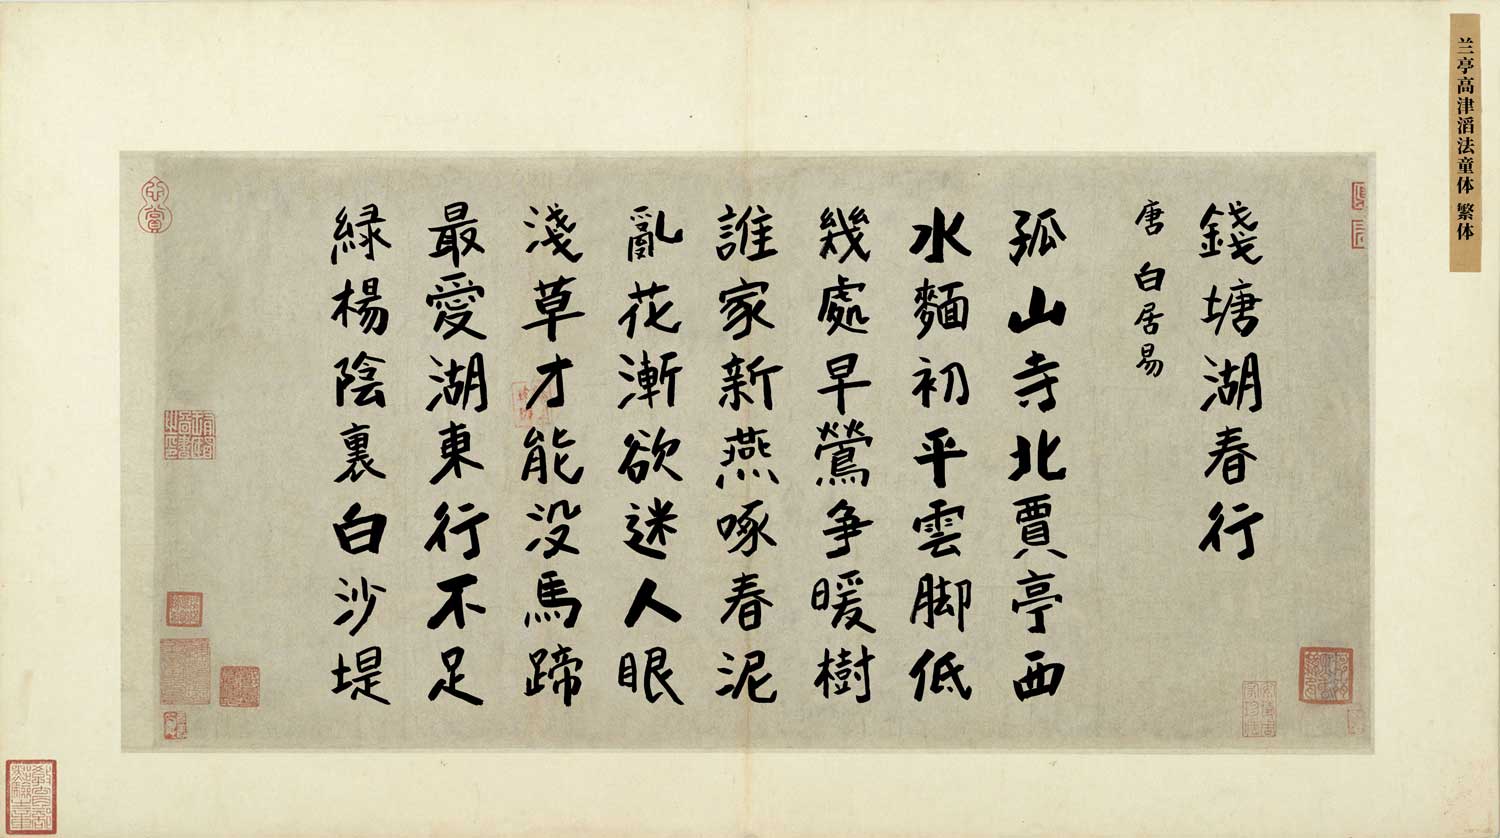 兰亭高津滔法童体 繁体
錢塘湖春行
唐 白居易
孤山寺北賈亭西
水麵初平雲脚低
幾處早鶯争暖樹
誰家新燕啄春泥
亂花漸欲迷人眼
淺草才能没馬蹄
最愛湖東行不足
緑楊陰裏白沙堤